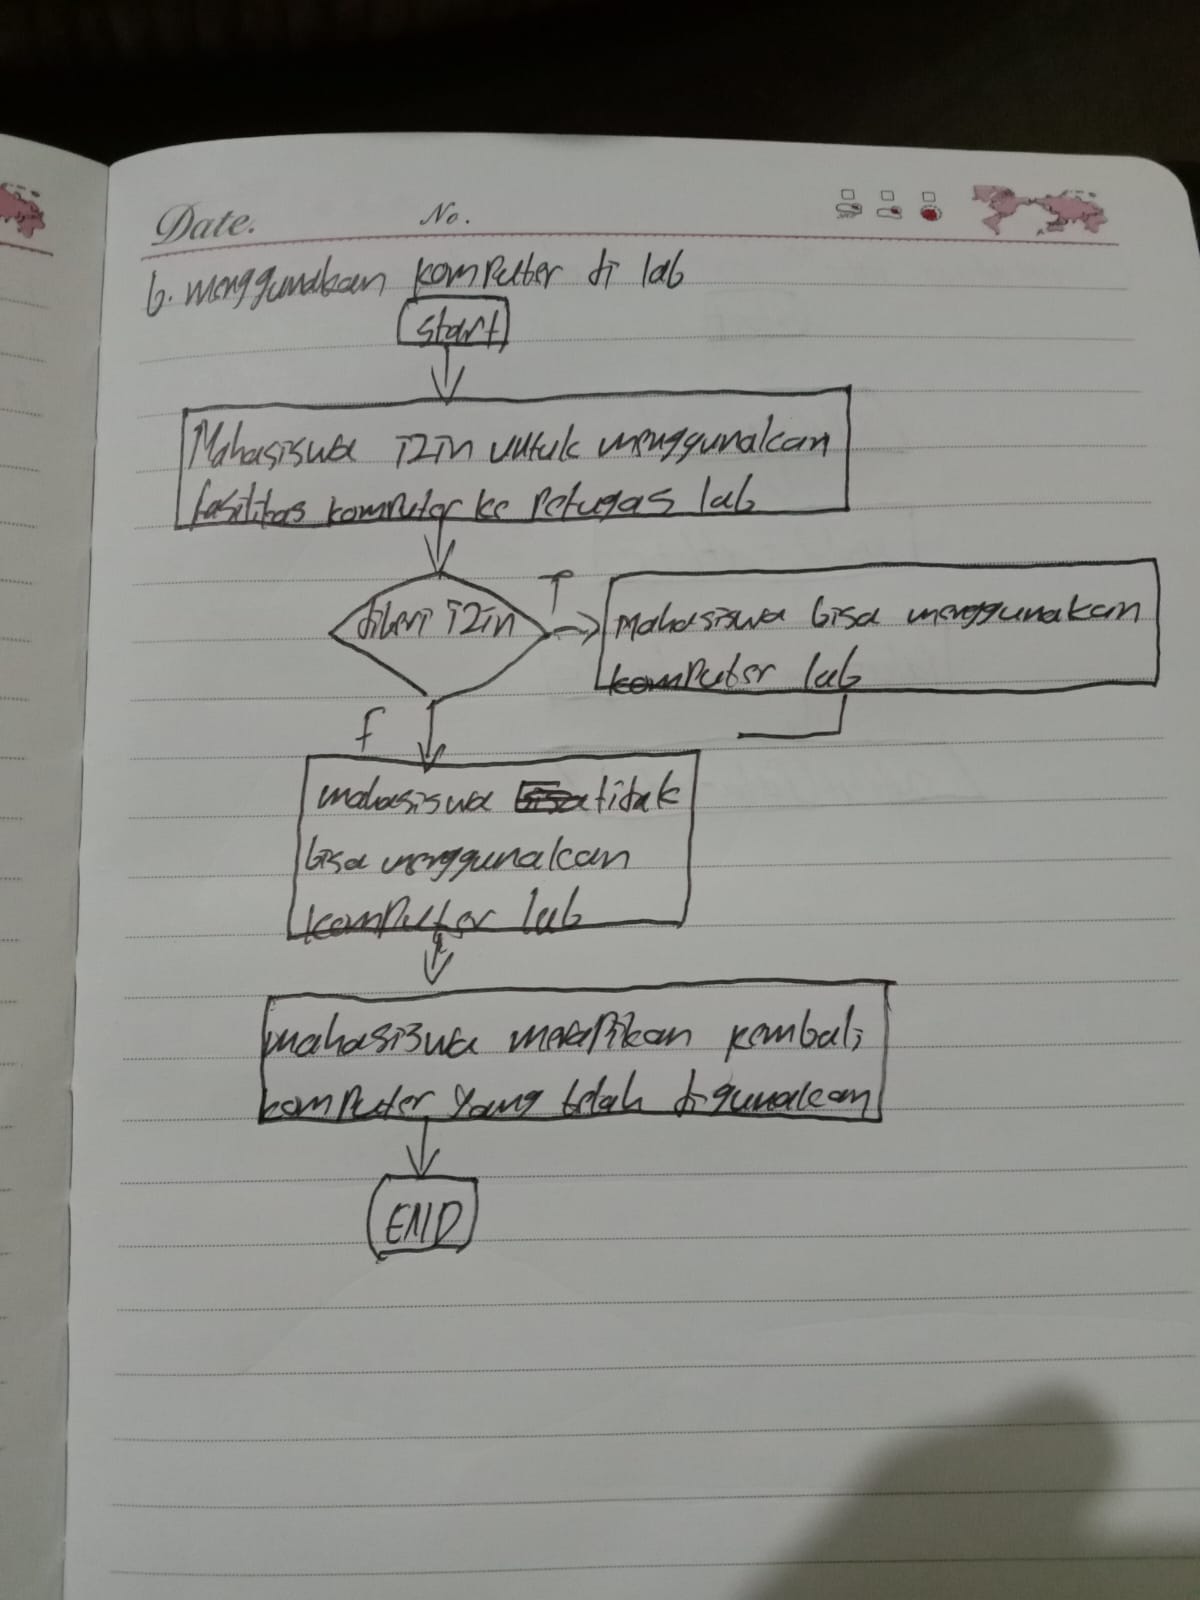 Date.
No.
b. menggunakan komputer di lab
Start
Mahasiswa izin untuk menggunakan
fasilitas komputer ke Petugas lab
diberi izin
T
Mahasiswa bisa menggunakan
komputer lab
f
mahasiswa tidak
bisa menggunakan
komputer lab
mahasiswa merapikan kembali
komputer yang telah digunakan
END